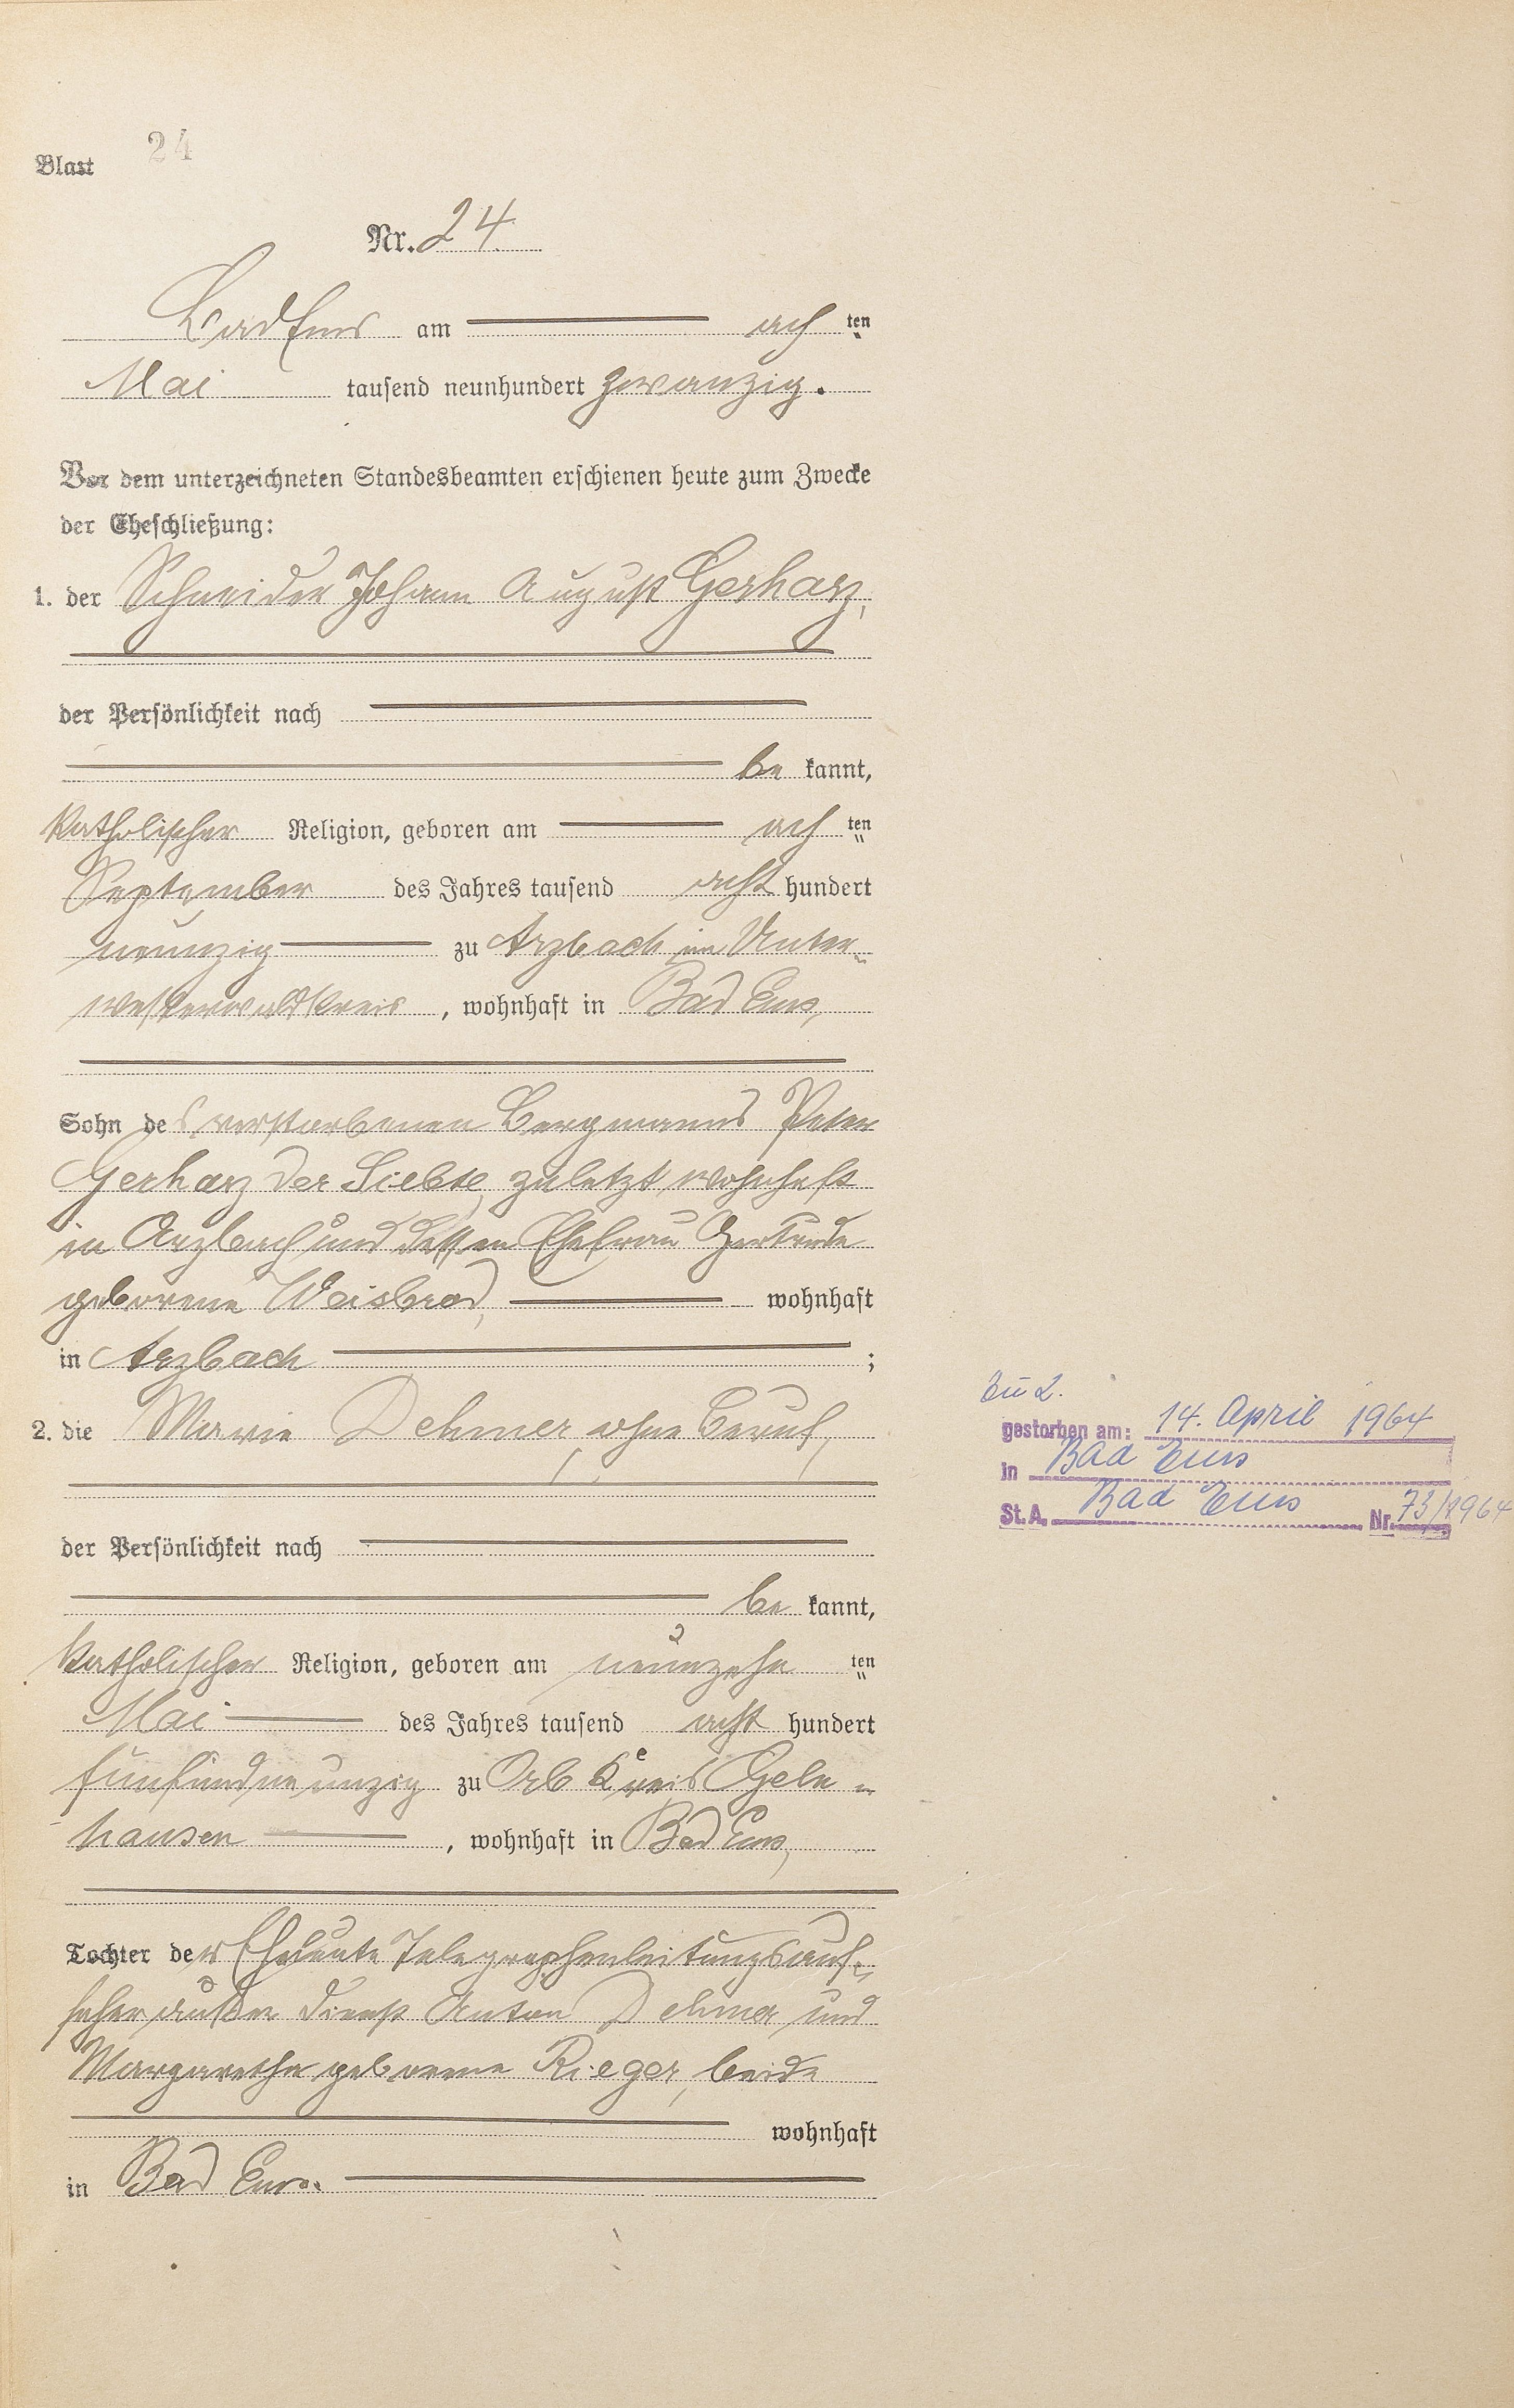 Blatt 24
Nr. 24.
Bad Ems am ach ten
Mai tausend neunhundert zwanzig.
Vor dem unterzeichneten Standesbeamten erschienen heute zum Zwecke
der Eheschließung:
1. der Schneider Johann August Gerharz,
der Persönlichkeit nach
be kannt,
katholischer Religion, geboren am ach ten
September des Jahres tausend acht hundert
neunzig zu Arzbach im Unter-
westerwaldkreis, wohnhaft in Bad Ems,
Sohn des verstorbenen Bergmanns Peter
Gerharz der Siebte, zuletzt wohnhaft
in Arzbach und dessen Ehefrau Gertrude
geborene Weisbrod, wohnhaft
in Arzbach ;
2. die Marie Dehmer, ohne Beruf,
der Persönlichkeit nach
be kannt,
katholischer Religion, geboren am neunzehn ten
Mai des Jahres tausend acht hundert
fünfundneunzig zu Orb Kreis Geln-
hausen, wohnhaft in Bad Ems,
Tochter der Eheleute Telegraphenleitungsauf-
seher außer Dienst Anton Dehmer und
Margarethe geborene Rieger, beide
wohnhaft
in Bad Ems.
Zu 2.
gestorben am: 14. April 1964
in Bad Ems
St. A. Bad Ems Nr. 73/1964